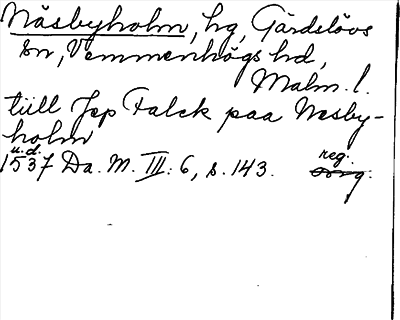 Näsbyholm, hg, Gärdslövs
sn, Vemmenhögs hd,
Malm. l.
till Jep Falck paa Nesby-
holm
u.d.
1537 Da. M. III: 6, s. 143. reg.